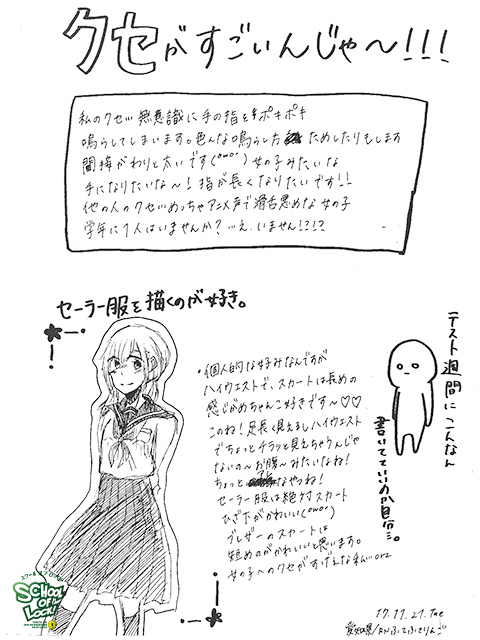 クセがすごいんじゃ～!!!
私のクセ♡ 無意識に手の指をポキポキ
鳴らしてしまいます。色んな鳴らし方 ためしたりもします
関接がわりと太いです(°ω°)女の子みたいな
手になりたいな～!指が長くなりたいです!!
他の人のクセ♡めっちゃアニメ声で滑舌悪めな女の子
学年に1人はいませんか?いえ、いません!?!?
セーラー服を描くのが好き。
・個人的な好みなんですが
ハイウエストで、スカートは長めの
感じがめちゃんこ好きです～♡♡
このね!足長く見えるしハイウエスト
でちょっとチラッと見えちゃうんじゃ
ないの～お腹～みたいなね!
ちょっと なやつね!
セーラー服は絶対スカート
ひざ下がかわいい(°ω°)
ブレザーのスカートは
短めのがかわいいと思います。
女の子へのクセがすげえな私…orz
テスト週間にこんなん
書いてていいのか自分…。
スクール オブ ロック!
SCHOOL
OF
LOCK!
17.11.21.Tue
愛知県/RNふさふさりんご